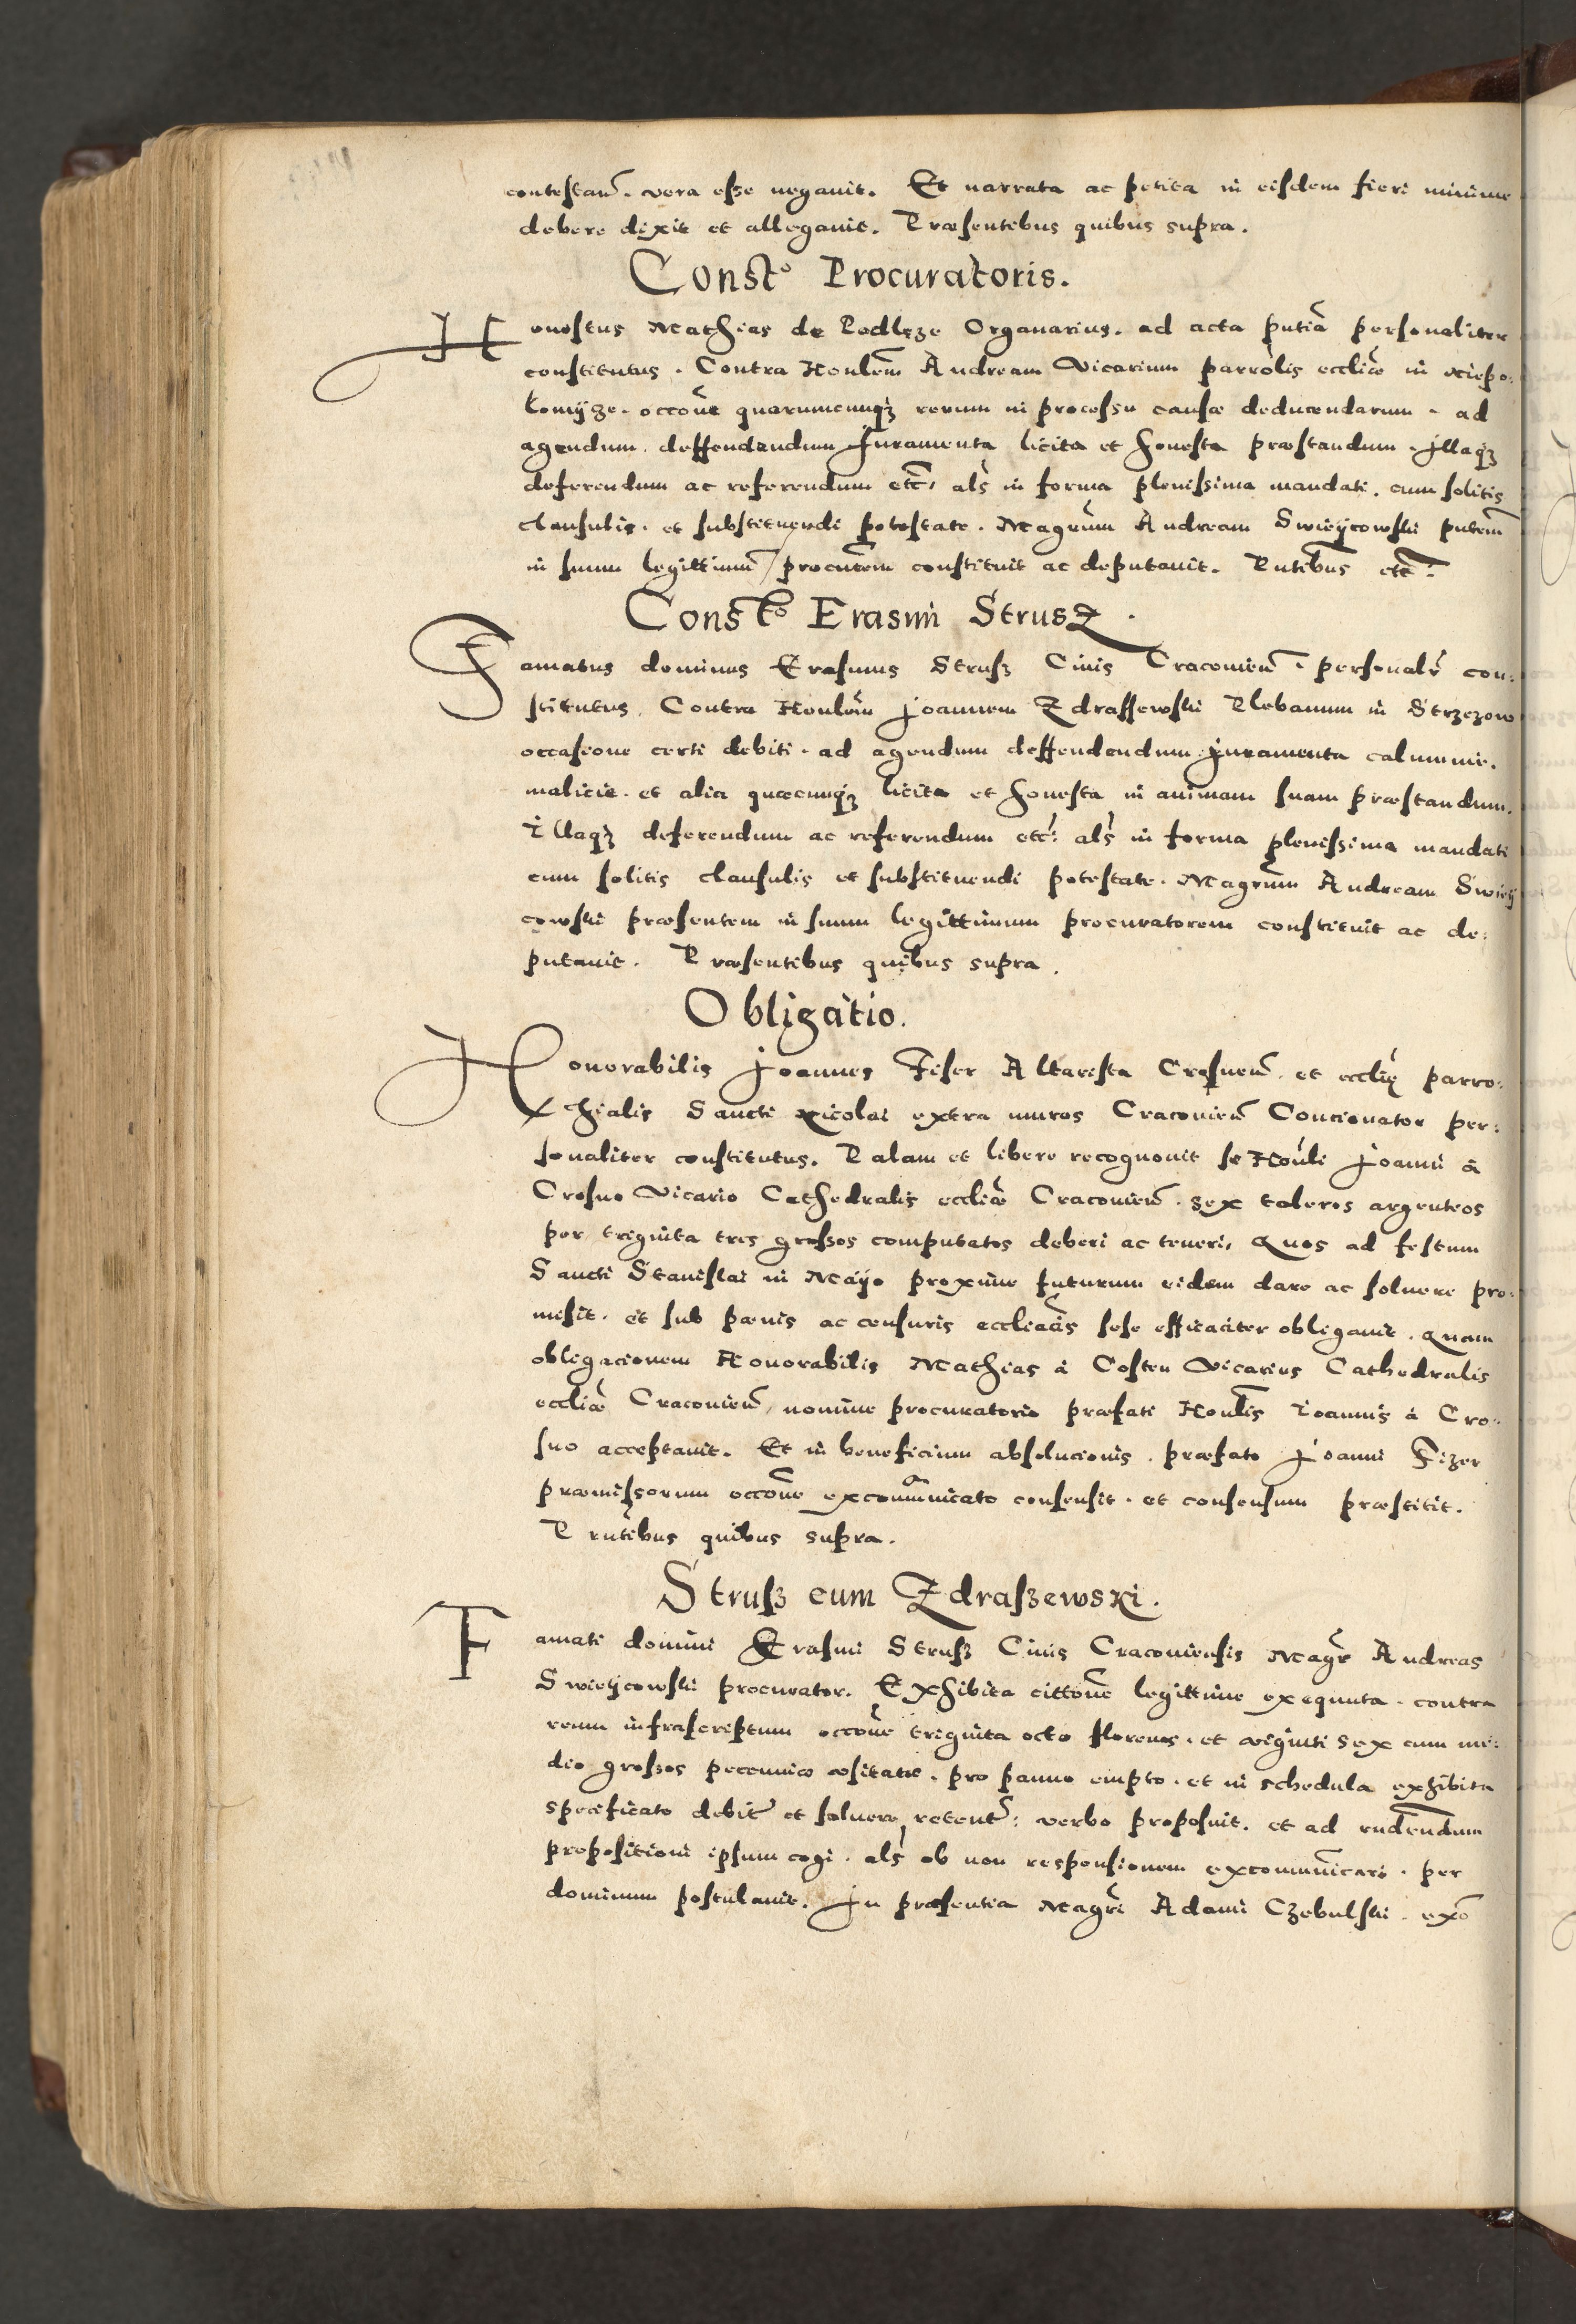 contestaẽ. vera esse negauit. Et narrata ac petita in eisdem fieri minime
debere dixit et allegauit. Præsentibus quibus supra.
Const͠o Procuratoris.
Honestus Mathias de Podlęze Organarius. ad acta pn̄tia personaliter
constitutus. Contra Honlem̃ Andream Vicarium parrōlis eccliæ in Niepo:
lomÿcze. occōne quarumcunqȝ rerum in processu causæ deducendarum. ad
agendum. deffendendum Juramenta licita et honesta præstandum. Jllaqȝ
deferendum ac referendum etc̃, als̀ in forma plenissima mandati. cum solitis
clausulis. et substituendi potestate. Magrum̃ Andream Swieÿcowski pn̄tem
in suum legittimũ procur̃em constituit ac deputauit. Pn̄tibus etc̃:
Const͠o Erasmi Strusz.
Famatus dominus Erasmus Strusz Ciuis Cracouien̄. personalr̃ con:
stitutus. Contra Honlem̃ Joannem Zdrassewski Plebanum in Strzezow
occasione certi debiti. ad agendum deffendendum Juramenta calumnie.
malicie. et alia quæcunqȝ licita et honesta in animam suam præstandum.
Illaqȝ deferendum ac referendum etc̃: als̀ in forma plenissima mandati
cum solitis clausulis et substituendi potestate. Magrum̃ Andream Swieÿ
cowski præsentem in suum legittimum procuratorem constituit ac de:
putauit. Præsentibus quibus supra.
Obligatio.
Honorabilis Joannes Fiser Altarista Crosnen̄. et ecclię parro:
chialis Sancti Nicolai extra muros Cracouien̄ Concionator per:
sonaliter constitutus. Palam et libere recognouit se Honli Joanni à
Crosno Vicario Cathedralis eccliæ Cracouien̄. sex taleros argenteos
per triginta tres grossos computatos deberi ac teneri, Quos ad festum
Sancti Stanislai in Maÿo proxime futurum eidem dare ac soluere pro:
misit. et sub pænis ac censuris eccliacis̃ sese efficaciter obligauit. Quam
obligacionem Honorabilis Mathias à Costen Vicarius Cathedralis
eccliæ Cracouien̄, nomine procuratorio præfati Honlis̃ Ioannis à Cro:
sno acceptauit. Et in beneficium absolucionis. præfato Joanni Fizer
præmissorum occōne excom̃unicato consensit. et consensum præstitit.
Prn̄tibus quibus supra.
Strusz cum Zdraszewski.
Famati domini Erasmi Strusz Ciuis Cracouiensis Magr̃ Andreas
Swieÿcowski procurator. Exhibita citt̃one legittime exequuta. contra
reum infrascriptum occōne triginta octo florenos. et viginti sex cum me:
dio grossos pecuniæ vsitatæ. pro panno empto. et in schedula exhibita
specificato debit̃ et soluere retent̃: verbo proposuit. et ad rn̄dendum
propositioni ipsum cogi. als̀ ob non responsionem excomunicari. per
dominum postulauit. Jn præsentia Magri Adami Czebulski. exō